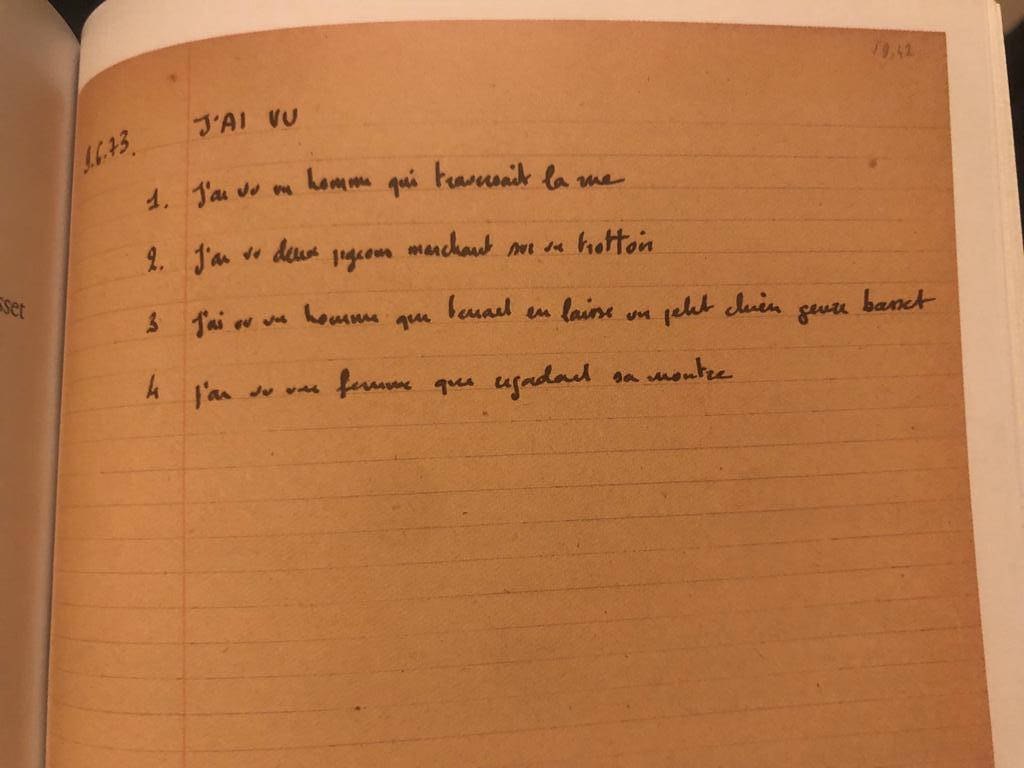 19,42
J'AI VU
9.6.73.
1. J'ai vu un homme qui traversait la rue
2. J'ai vu deux pigeons marchant sur un trottoir
sset
3 J'ai vu un homme qui tenait en laisse un petit chien genre basset
4 J'ai vu une femme qui regardait sa montre